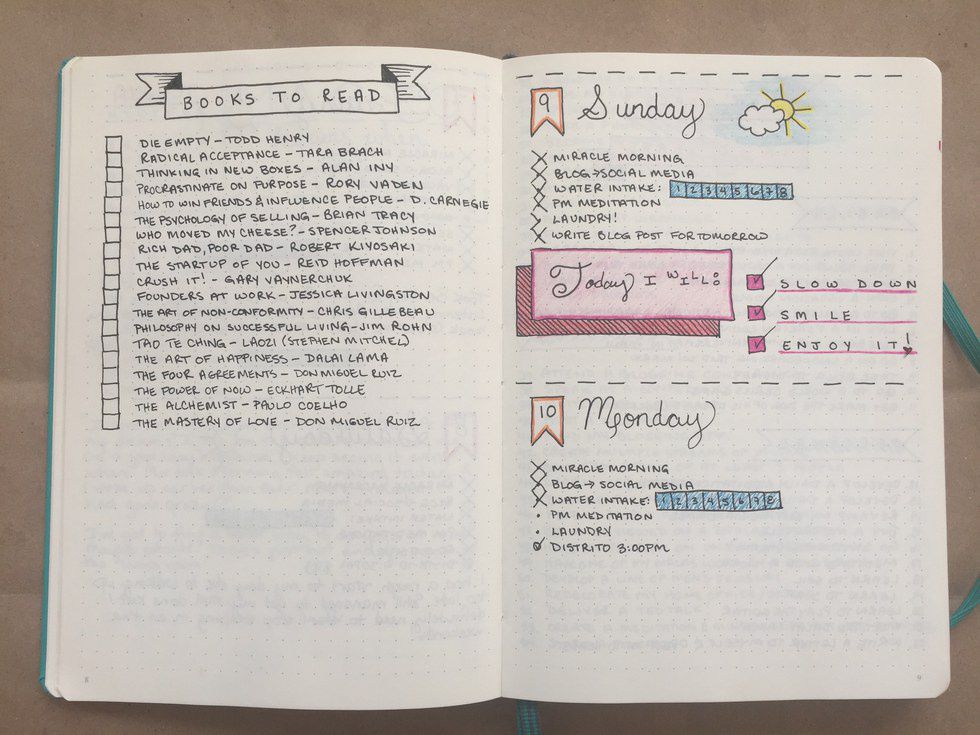 BOOKS TO READ
DIE EMPTY - TODD HENRY
RADICAL ACCEPTANCE - TARA BRACH
THINKING IN NEW BOXES - ALAN INY
PROCRASTINATE ON PURPOSE - RORY VADEN
HOW TO WIN FRIENDS & INFLUENCE PEOPLE - D. CARNEGIE
THE PSYCHOLOGY OF SELLING - BRIAN TRACY
WHO MOVED MY CHEESE? - SPENCER JOHNSON
RICH DAD, POOR DAD - ROBERT KIYOSAKI
THE STARTUP OF YOU - REID HOFFMAN
CRUSH IT! - GARY VAYNERCHUK
FOUNDERS AT WORK - JESSICA LIVINGSTON
THE ART OF NON-CONFORMITY - CHRIS GILLEBEAU
PHILOSOPHY ON SUCCESSFUL LIVING - JIM ROHN
TAO TE CHING - LAOZI (STEPHEN MITCHEL)
THE ART OF HAPPINESS - DALAI LAMA
THE FOUR AGREEMENTS - DON MIGUEL RUIZ
THE POWER OF NOW - ECKHART TOLLE
THE ALCHEMIST - PAULO COELHO
THE MASTERY OF LOVE - DON MIGUEL RUIZ
8
9 Sunday
MIRACLE MORNING
BLOG → SOCIAL MEDIA
WATER INTAKE: 1 2 3 4 5 6 7 8
PM MEDITATION
LAUNDRY!
WRITE BLOG POST FOR TOMORROW
Today I WILL:
SLOW DOWN
SMILE
ENJOY IT!
10 Monday
MIRACLE MORNING
BLOG → SOCIAL MEDIA
WATER INTAKE: 1 2 3 4 5 6 7 8
PM MEDITATION
LAUNDRY
DISTRITO 3:00PM
9